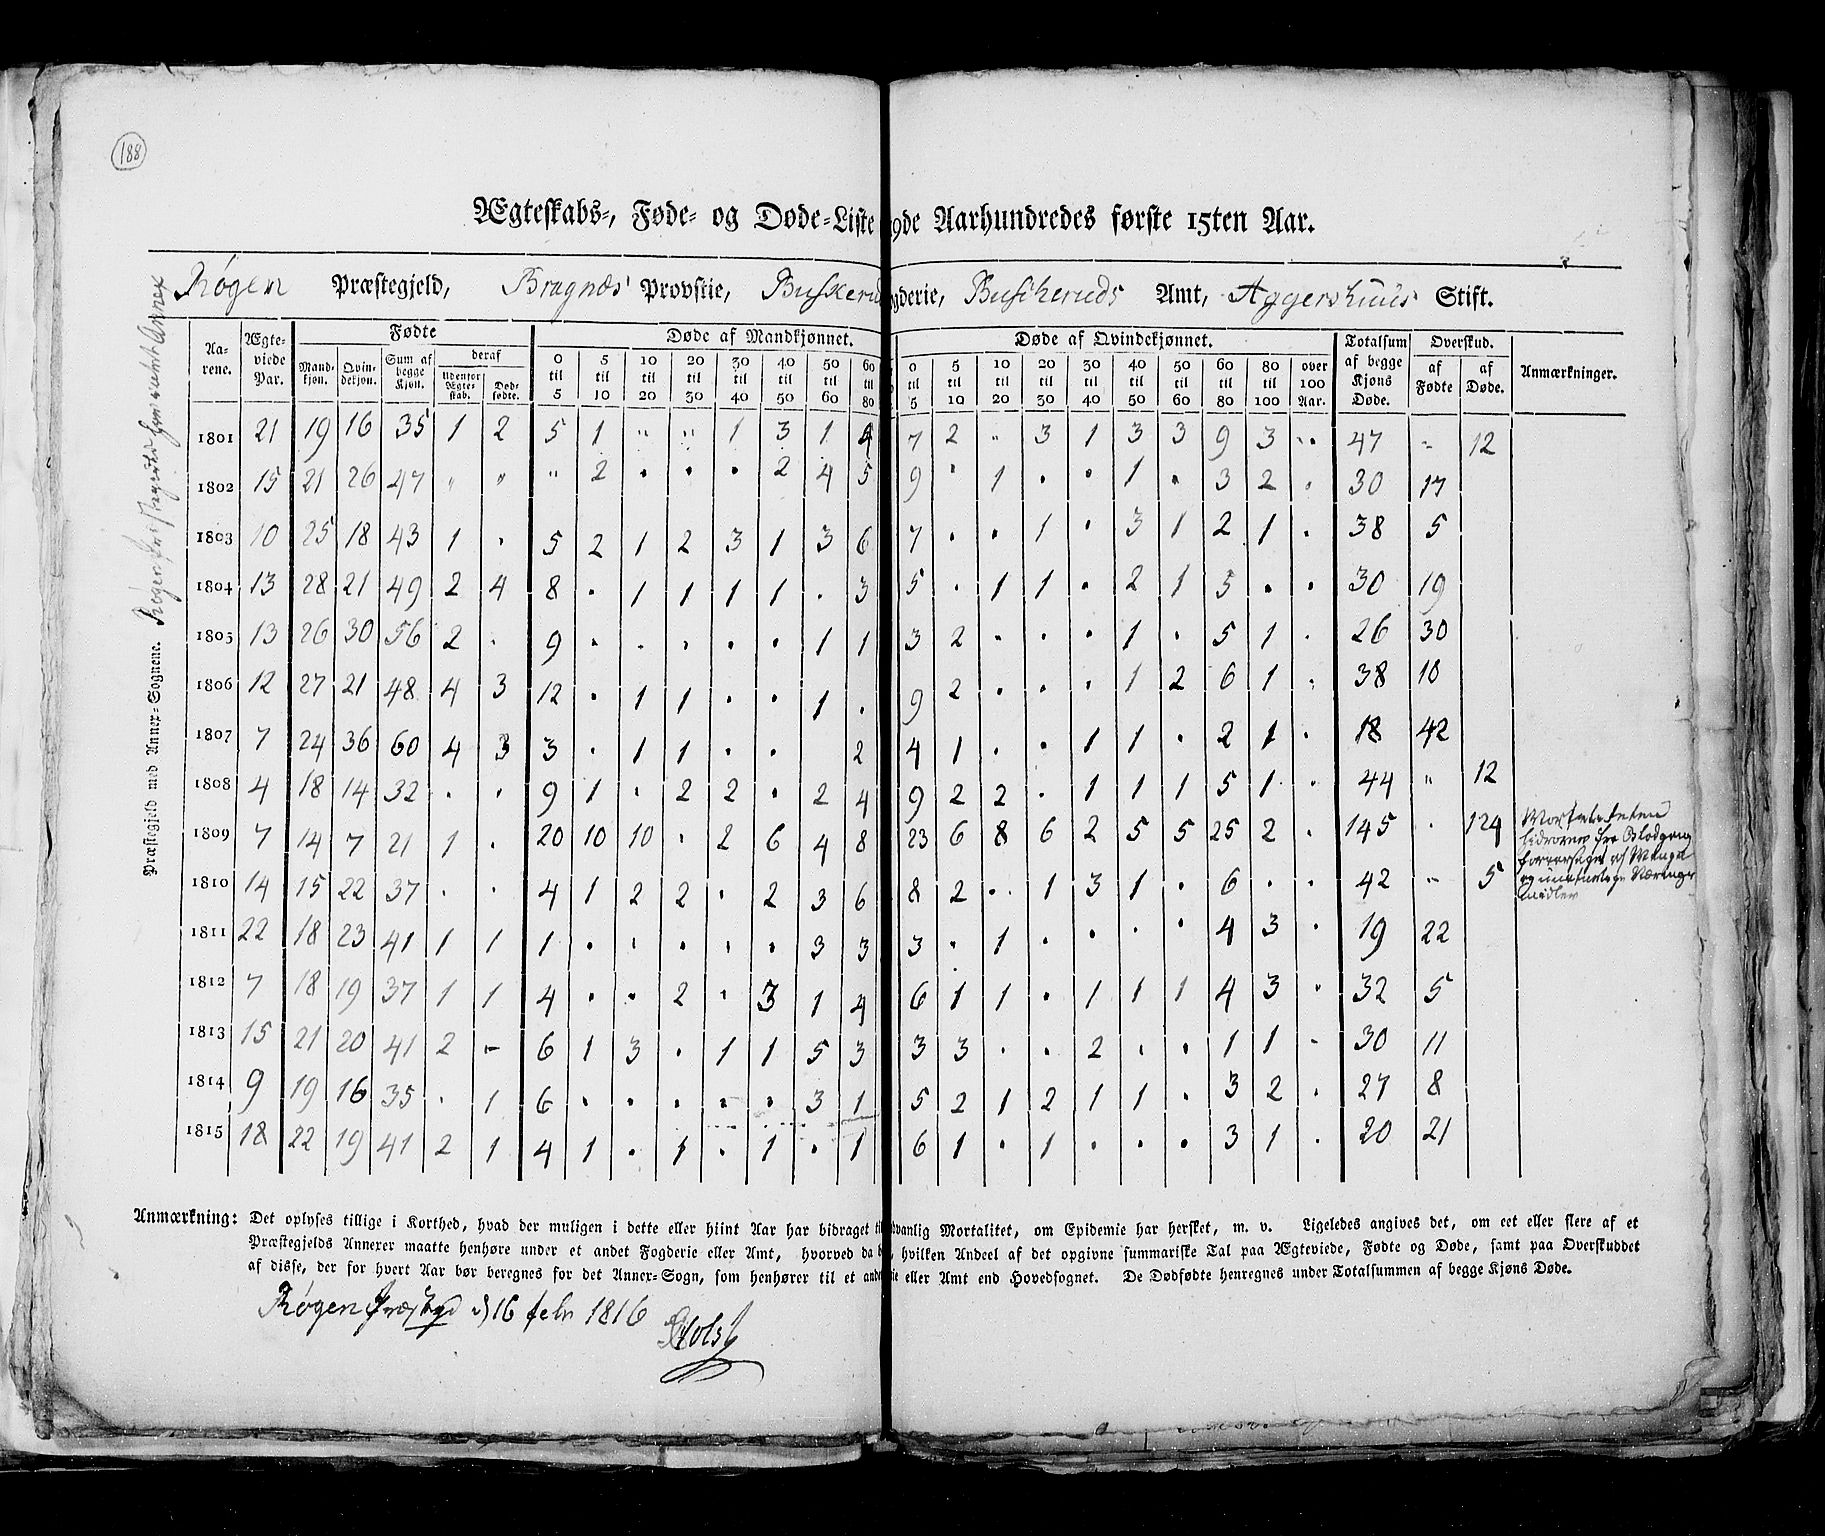 188
Ægteskabs-, Føde- og Døde-Liste 9de Aarhundredes første 15ten Aar.
Røgen Præstegjeld, Bragnæs Provstie, Buskerud gderie, Buskeruds Amt, Aggershuus Stift.
Præstegjeld med Annex-Sognene. Røgen
Aarene. Ægteviede Par. Fødte Døde af Mandkjønnet. Døde af Qvindekjønnet. Totalsum af begge Kjøns Døde. Overskud. Anmærkninger.
Mandkjøn. Qvindekjøn. Sum af begge Kjøn. deraf Udenfor Ægteskab. Dødfødte. 0 til 5 5 til 10 10 til 20 20 til 30 30 til 40 40 til 50 50 til 60 60 til 80 0 til 5 5 til 10 10 til 20 20 til 30 30 til 40 40 til 50 50 til 60 60 til 80 80 til 100 over 100 Aar. af Fødte af Døde.
1801 21 19 16 35 1 2 5 1 " " 1 3 1 4 7 2 " 3 1 3 3 9 3 " 47 " 12
1802 15 21 26 47 " " " 2 • • • 2 4 5 9 " 1 • • 1 • 3 2 • 30 17
1803 10 25 18 43 1 • 5 2 1 2 3 1 3 6 7 • • 1 • 3 1 2 1 • 38 5
1804 13 28 21 49 2 4 8 • 1 1 1 1 • 3 5 • 1 1 • 2 1 5 • • 30 19
1805 13 26 30 56 2 • 9 • • • • • 1 1 3 2 • • • 1 • 5 1 • 26 30
1806 12 27 21 48 4 3 12 • 1 1 • • 1 • 9 2 • • • 1 2 6 1 • 38 10
1807 7 24 36 60 4 3 3 • 1 1 • • 2 4 1 • • 1 1 • 2 1 • 18 42
1808 4 18 14 32 • • 9 1 • 2 2 • 2 4 9 2 2 • 1 1 1 5 1 • 44 " 12
1809 7 14 7 21 1 • 20 10 10 • 2 6 4 8 23 6 8 6 2 5 5 25 2 • 145 • 124 Mortaliteten
hidrører fra Blodgang
foraarsaget af Mangel
og Nærings
midler
1810 14 15 22 37 • • 4 1 2 2 • 2 3 6 8 2 • 1 3 1 • 6 • • 42 – 5
1811 22 18 23 41 1 1 1 • • • • • 3 3 3 • 1 • • • • 4 3 • 19 22
1812 7 18 19 37 1 1 4 • • 2 • 3 1 4 6 1 1 • 1 1 1 4 3 • 32 5
1813 15 21 20 41 2 – 6 1 3 • 1 1 5 3 3 3 • • 2 • • 1 1 – 30 11
1814 9 19 16 35 • 1 6 • • • • • 3 1 5 2 1 2 1 1 • 3 2 • 27 8
1815 18 22 19 41 2 1 4 1 • 1 • 1 • 1 6 1 • 1 • • • 3 1 • 20 21
Anmærkning: Det oplyses tillige i Korthed, hvad der muligen i dette eller hiint Aar har bidraget til dvanlig Mortalitet, om Epidemie har hersket, m. v. Ligeledes angives det, om eet eller flere af et
Præstegjelds Annexer maatte henhøre under et andet Fogderie eller Amt, hvorved da b , hvilken Andeel af det opgivne summariske Tal paa Ægteviede, Fødte og Døde, samt paa Overskuddet
af disse, der for hvert Aar bør beregnes for det Annex-Sogn, som henhører til et andet ie eller Amt end Hovedsognet. De Dødfødte henregnes under Totalsummen af begge Kjøns Døde.
Røgen Præstegd d 16 febr 1816